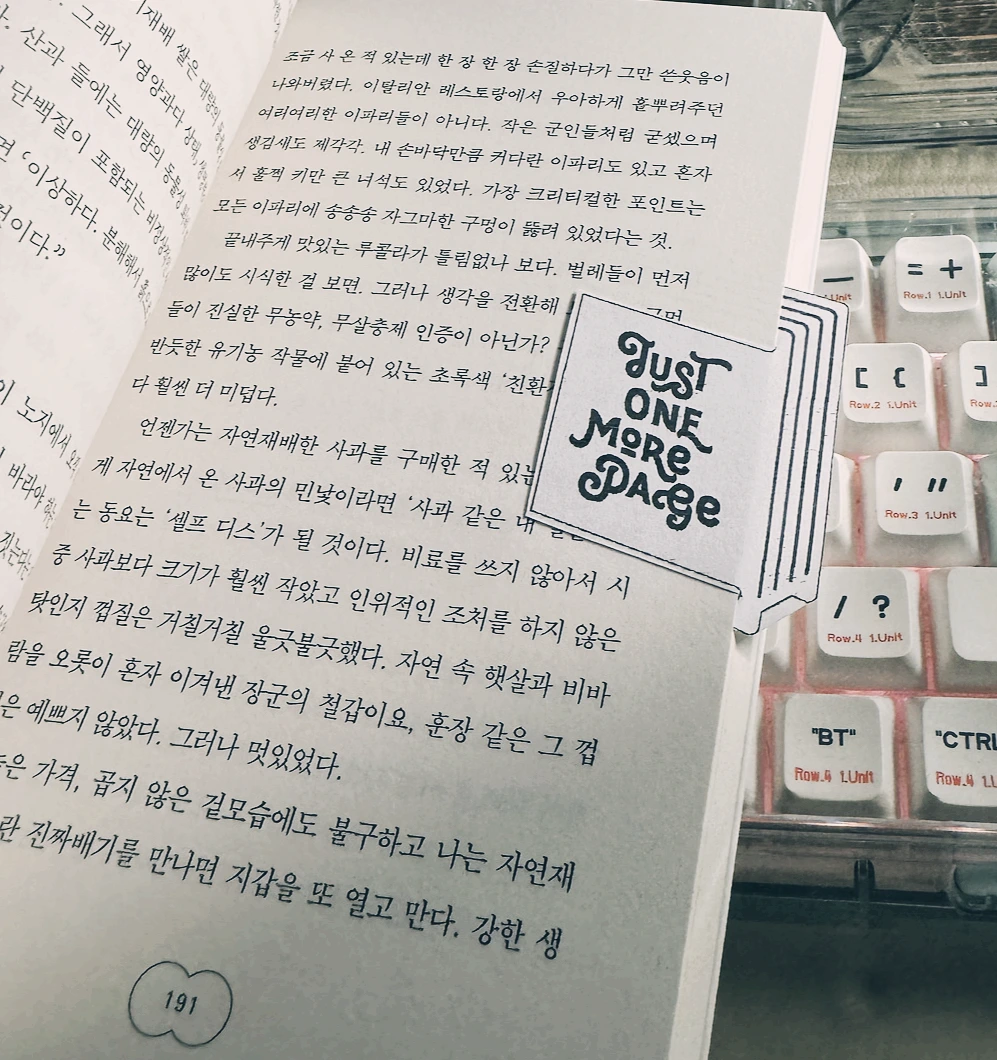 재배 쌀은 대량의
그래서 영양과다 상태
산과 들에는 대량의 동물성
단백질이 포함되는 비정상적
면 ‘이상하다. 분해해서
것이다.”
이 노지에서
바라야
조금 사 온 적 있는데 한 장 한 장 손질하다가 그만 쓴웃음이
나와버렸다. 이탈리안 레스토랑에서 우아하게 흩뿌려주던
여리여리한 이파리들이 아니다. 작은 군인들처럼 굳셌으며
생김새도 제각각. 내 손바닥만큼 커다란 이파리도 있고 혼자
서 훌쩍 키만 큰 녀석도 있었다. 가장 크리티컬한 포인트는
모든 이파리에 송송송 자그마한 구멍이 뚫려 있었다는 것.
끝내주게 맛있는 루콜라가 틀림없나 보다. 벌레들이 먼저
많이도 시식한 걸 보면. 그러나 생각을 전환해
들이 진실한 무농약, 무살충제 인증이 아닌가?
반듯한 유기농 작물에 붙어 있는 초록색 ‘친환
다 훨씬 더 미덥다.
언젠가는 자연재배한 사과를 구매한 적 있는
게 자연에서 온 사과의 민낯이라면 ‘사과 같은 내
는 동요는 ‘셀프 디스’가 될 것이다. 비료를 쓰지 않아서 시
중 사과보다 크기가 훨씬 작았고 인위적인 조처를 하지 않은
탓인지 껍질은 거칠거칠 울긋불긋했다. 자연 속 햇살과 비바
람을 오롯이 혼자 이겨낸 장군의 철갑이요, 훈장 같은 그 껍
은 예쁘지 않았다. 그러나 멋있었다.
은 가격, 곱지 않은 겉모습에도 불구하고 나는 자연재
란 진짜배기를 만나면 지갑을 또 열고 만다. 강한 생
191
JUST
ONE
MORE
PAGE
= +
Row.1 1.Unit
[ {
Row.2 1.Unit
]
Row.2
' "
Row.3 1.Unit
/ ?
Row.4 1.Unit
"BT"
Row.4 1.Unit
"CTRL
Row.4 1.U